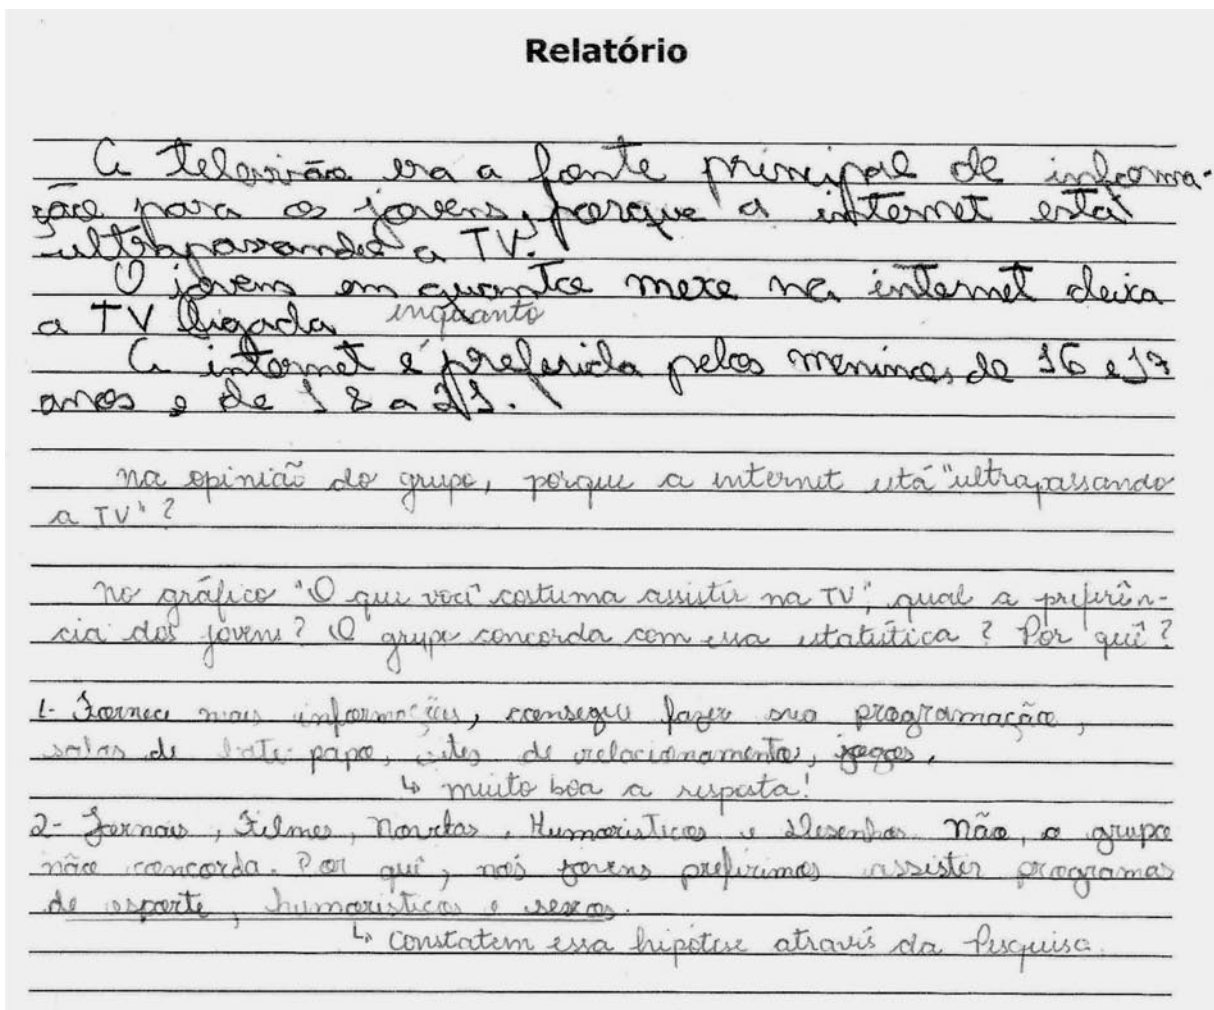 Relatório
A televisão era a fonte principal de informa-
ção para os jovens, porque a internet está
ultrapassando a TV.
O jovem em quanto mexe na internet deixa
a TV ligada inquanto
A internet é preferida pelos meninos de 16 e 17
anos e de 18 a 21.
Na opinião do grupo, porque a internet está "ultrapassando
a TV"?
No gráfico "O que você costuma assistir na TV", qual a preferên-
cia dos jovens? O grupo concorda com essa estatística? Por quê?
1- Fornece mais informações, consegue fazer sua programação,
salas de bate-papo, sites de relacionamento, jogos.
↳ muito boa a resposta!
2- Jornais, Filmes, Novelas, Humorísticos e Desenhos. Não, o grupo
não concorda. Por quê, nós jovens preferimos assistir programas
de esporte, humorísticos e sexos.
↳ Constatem essa hipótese através da Pesquisa.